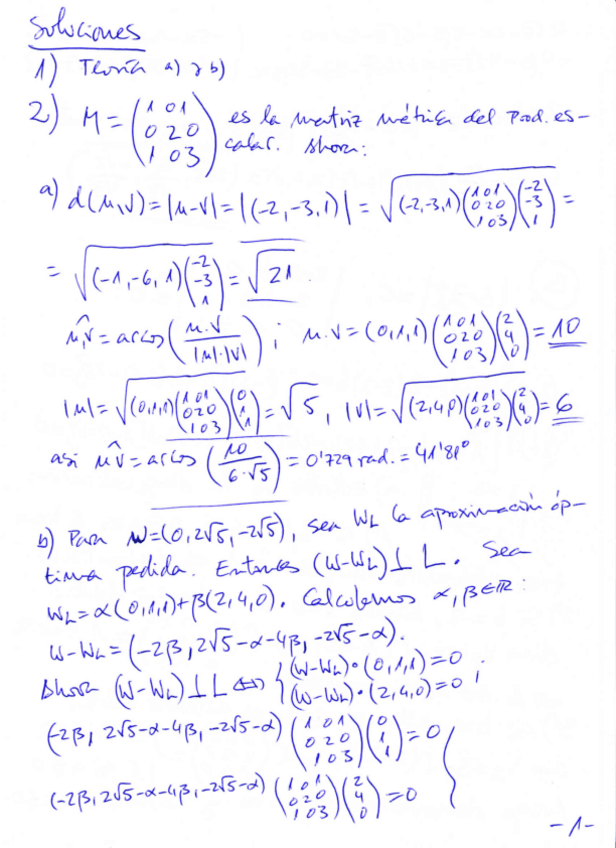 Soluciones
1) Teoría a) y b)
2) M = (1 0 1 / 0 2 0 / 1 0 3) es la matriz métrica del Prod. es-
calar. Ahora:
a) d(u,v) = |u-v| = |(-2,-3,1)| = √((-2,-3,1)(1 0 1 / 0 2 0 / 1 0 3)(-2 / -3 / 1)) =
= √((-1,-6,1)(-2 / -3 / 1)) = √21.
û,v = arcos(u.v / |u|.|v|) ; u.v = (0,1,1)(1 0 1 / 0 2 0 / 1 0 3)(2 / 4 / 0) = 10
|u| = √((0,1,1)(1 0 1 / 0 2 0 / 1 0 3)(0 / 1 / 1)) = √5, |v| = √((2,4,0)(1 0 1 / 0 2 0 / 1 0 3)(2 / 4 / 0)) = 6
asi ûv = arcos(10 / 6·√5) = 0'729 rad. = 41'81º
b) Para w=(0,2√5,-2√5), sea W_L la aproximación óp-
tima pedida. Entonces (w-W_L)⊥L. Sea
W_L = α(0,1,1)+β(2,4,0). Calculemos α,β∈ℝ:
w-W_L = (-2β, 2√5-α-4β, -2√5-α).
Ahora (w-W_L)⊥L ⇔ { (w-W_L)•(0,1,1)=0 / (w-W_L)•(2,4,0)=0 ;
(-2β, 2√5-α-4β, -2√5-α)(1 0 1 / 0 2 0 / 1 0 3)(0 / 1 / 1) = 0
(-2β, 2√5-α-4β, -2√5-α)(1 0 1 / 0 2 0 / 1 0 3)(2 / 4 / 0) = 0 }
-1-